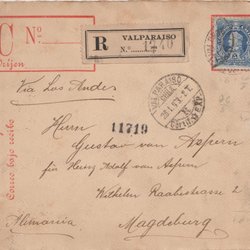 C Nº
R VALPARAISO
Nº 1240
Via Los Andes
VALPARAISO
CHILE
11719
Herrn
Gustav van Aspern
für Herrn Adolf van Aspern
Wilhelm Raabestrasse 2
Magdeburg
Alemania
Correo bajo recibo